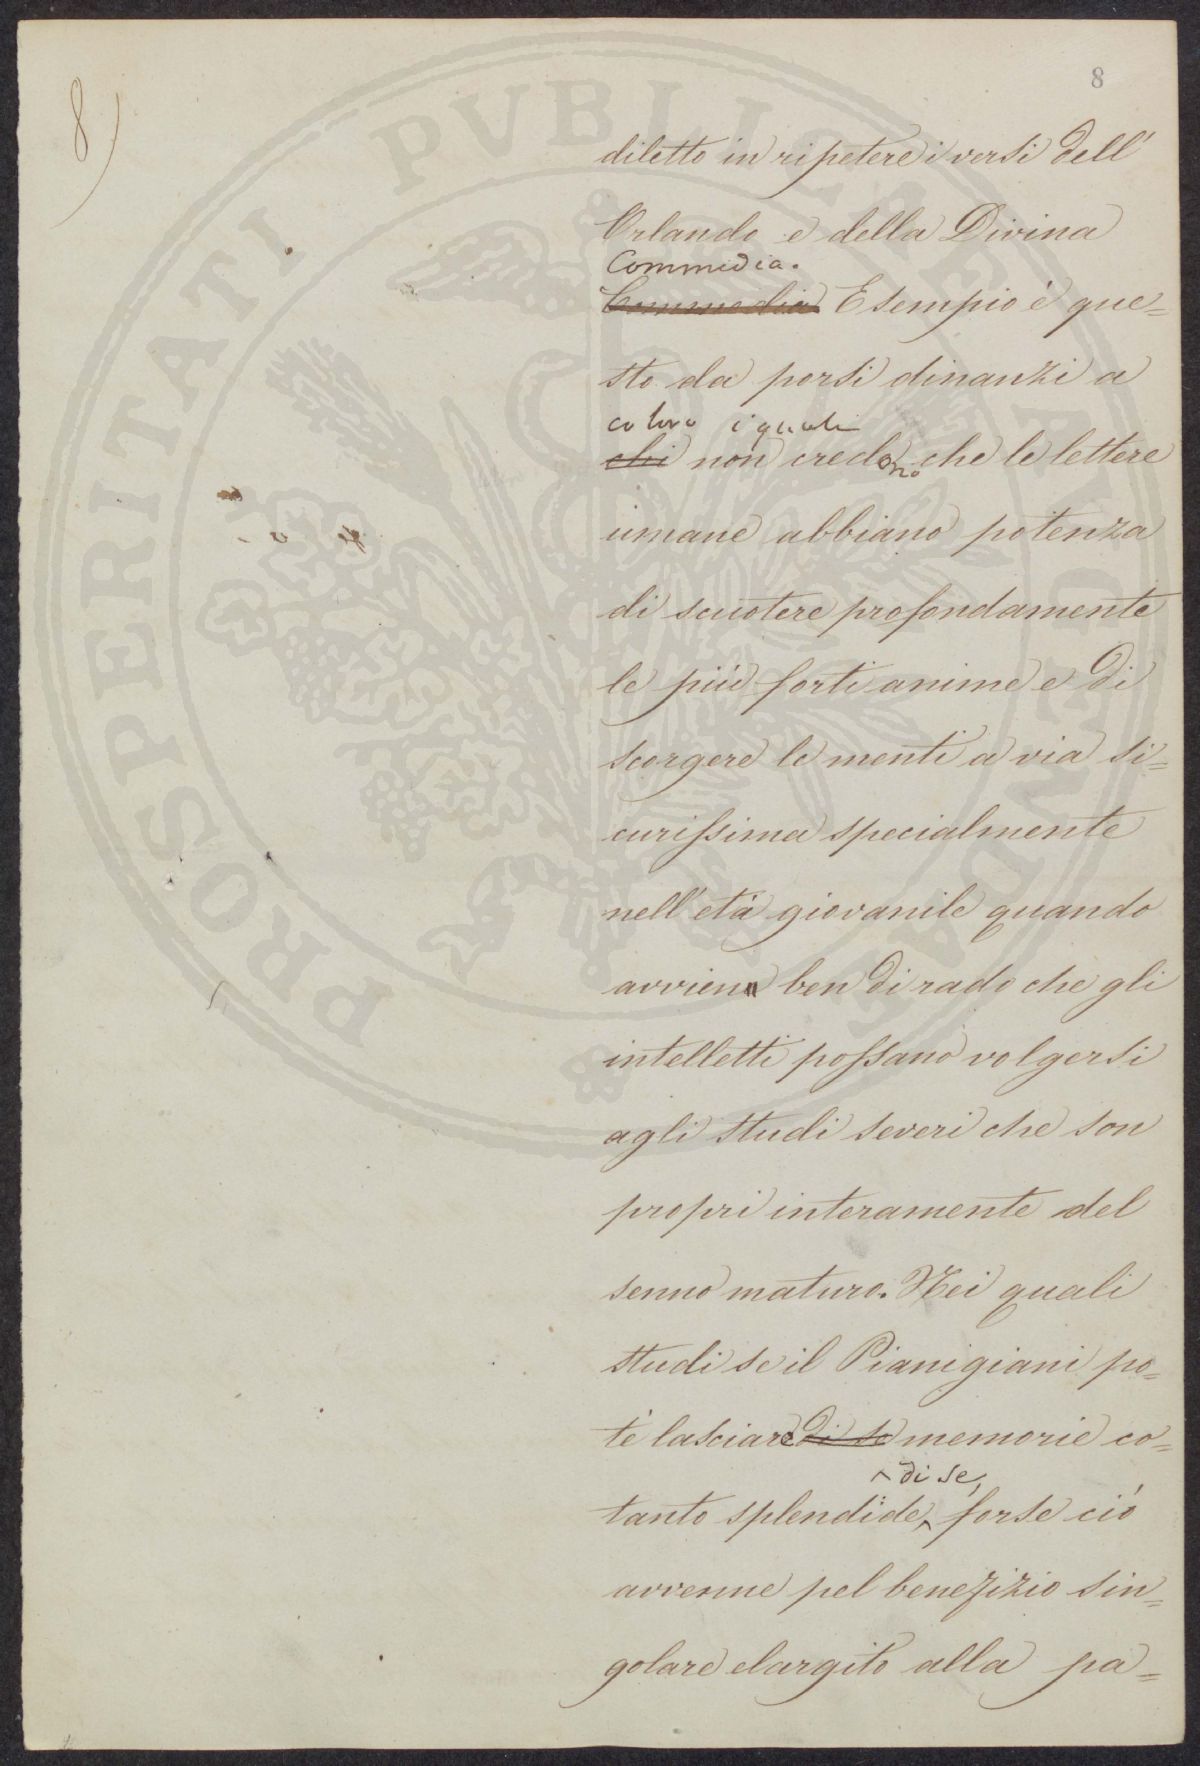 8)
8
diletto in ripetere i versi dell'
Orlando e della Divina
Commedia.
Commedia Esempio è que=
sto da porsi dinanzi a
coloro i quali
chi non credono che le lettere
umane abbiano potenza
di scuotere profondamente
le più forti anime e di
scorgere le menti a via si=
curissima specialmente
nell'età giovanile quando
avviene ben di rado che gli
intelletti possano volgersi
agli studi severi che son
propri interamente del
senno maturo. Nei quali
studi se il Pianigiani po=
tè lasciare di se memorie co=
di se,
tanto splendide, forse ciò
avvenne pel benefizio sin=
golare elargito alla pa=
PROSPERITATI PVBLICAE AVGENDAE